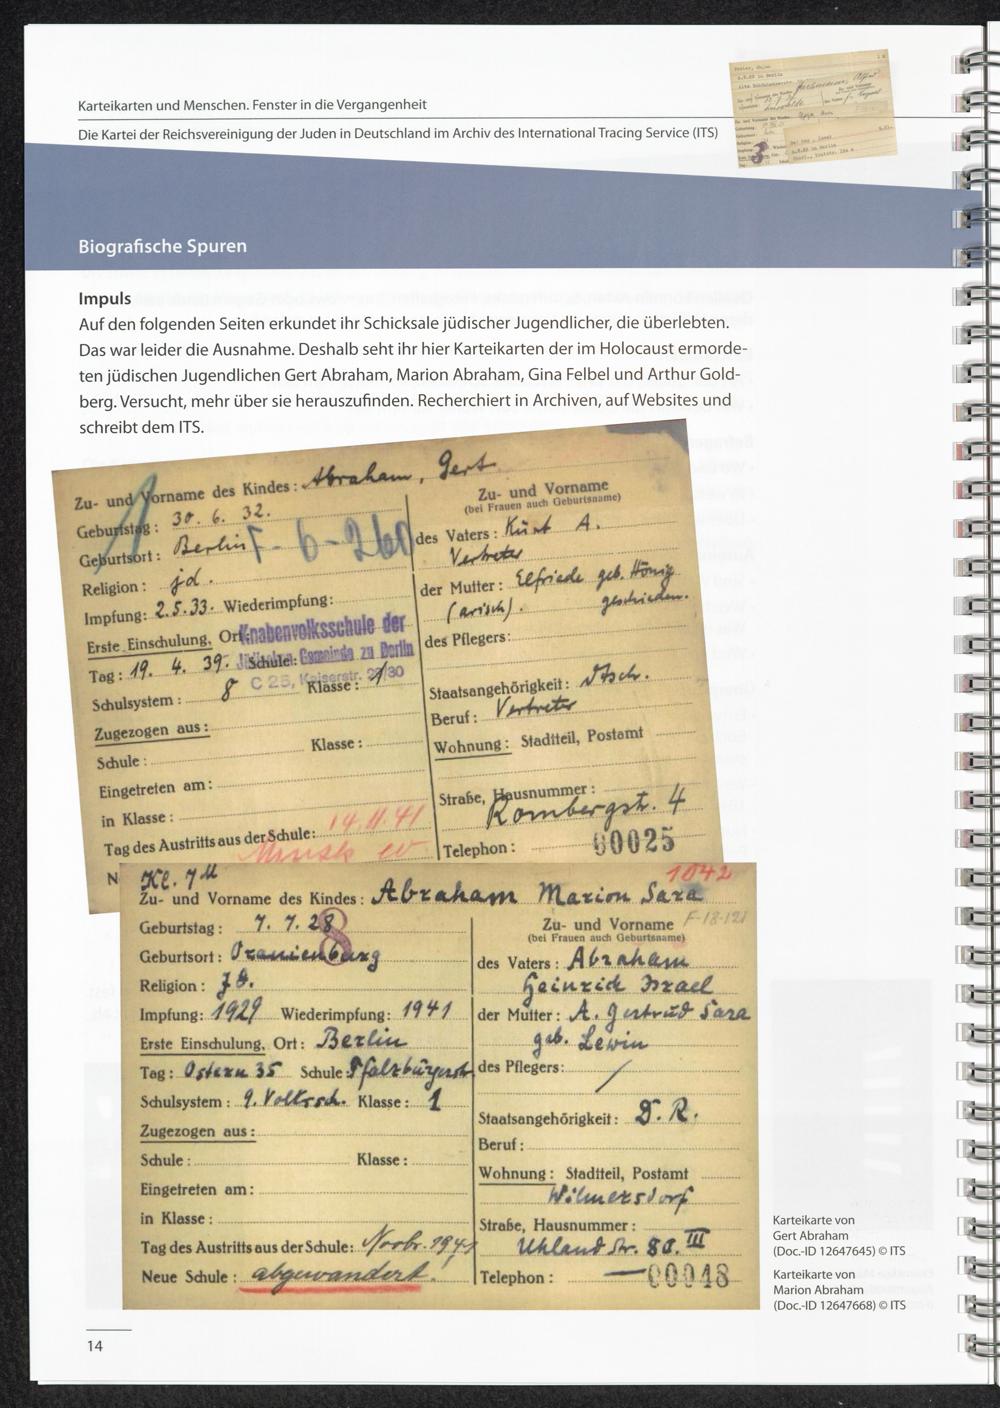 Karteikarten und Menschen. Fenster in die Vergangenheit
Die Kartei der Reichsvereinigung der Juden in Deutschland im Archiv des International Tracing Service (ITS)
Biografische Spuren
Impuls
Auf den folgenden Seiten erkundet ihr Schicksale jüdischer Jugendlicher, die überlebten.
Das war leider die Ausnahme. Deshalb seht ihr hier Karteikarten der im Holocaust ermorde-
ten jüdischen Jugendlichen Gert Abraham, Marion Abraham, Gina Felbel und Arthur Gold-
berg. Versucht, mehr über sie herauszufinden. Recherchiert in Archiven, auf Websites und
schreibt dem ITS.
1
Zu- und Vorname des Kindes: Abraham, Gert
Geburtstag: 30. 6. 32.
Geburtsort: Berlin F-6-260
Religion: jd.
Impfung: 2.5.33. Wiederimpfung:
Erste Einschulung, Ort: Knabenvolksschule der
Jüdischen Gemeinde zu Berlin
C 25, Kaiserstr. 29/30
Tag: 19. 4. 39. Schule:
Schulsystem: 8 Klasse: 1
Zugezogen aus:
Schule: Klasse:
Eingetreten am:
in Klasse:
Tag des Austritts aus der Schule: 14.11.41
Minsk
N
Zu- und Vorname
(bei Frauen auch Geburtsname)
des Vaters: Kurt A.
Vertreter
der Mutter: Elfriede geb. Hönig
(arisch). geschieden.
des Pflegers:
Staatsangehörigkeit: Dtsch.
Beruf: Vertreter
Wohnung: Stadtteil, Postamt
Straße, Hausnummer:
Rombergstr. 4
Telephon: 00025
Kl. 7M
1042
Zu- und Vorname des Kindes: Abraham Marion Sara
Geburtstag: 7. 7. 28
8
Geburtsort: Oranienburg
Religion: jd.
Impfung: 1929 Wiederimpfung: 1941
Erste Einschulung, Ort: Berlin
Tag: Ostern 35 Schule: Pfalzburgerstr.
Schulsystem: 9. Volkssch. Klasse: 1
Zugezogen aus:
Schule: Klasse:
Eingetreten am:
in Klasse:
Tag des Austritts aus der Schule: Novbr. 1941
Neue Schule: abgewandert.
Zu- und Vorname F-18-121
(bei Frauen auch Geburtsname)
des Vaters: Abraham
Heinrich Israel
der Mutter: A. Gertrud Sara
geb. Lewin
des Pflegers: /
Staatsangehörigkeit: D. R.
Beruf:
Wohnung: Stadtteil, Postamt
Wilmersdorf
Straße, Hausnummer:
Uhland Str. 80. III
Telephon: — 00048
Karteikarte von
Gert Abraham
(Doc.-ID 12647645) © ITS
Karteikarte von
Marion Abraham
(Doc.-ID 12647668) © ITS
14